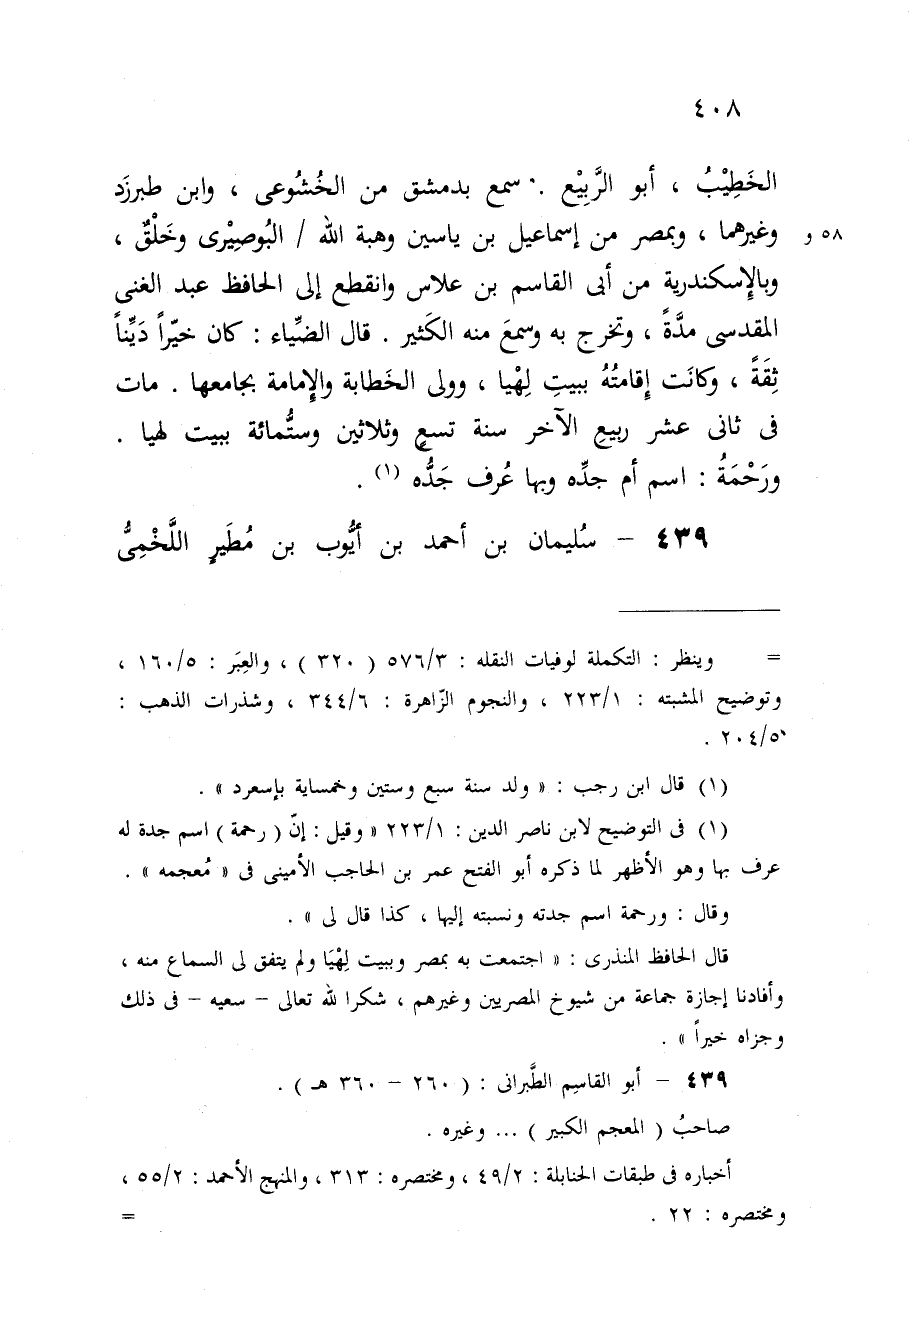 ٤٠٨
الخَطِيْبُ ، أبو الرَّبِيْع . سمع بدمشق من الخُشُوعى ، وابن طبرزَد
وغيرهما ، وبمصر من إسماعيل بن ياسين وهبة الله / البُوصِيْرى وخَلْقٌ ، ٥٨ و
وبالإسكندرية من أبى القاسم بن علاس وانقطع إلى الحافظ عبد الغنى
المقدسى مدَّةً ، وتخرج به وسمعَ منه الكَثير . قال الضِّياء : كان خيّراً دَيِّناً
ثِقَةً ، وكانَت إقامتُهُ ببيتِ لِهْيا ، وولى الخَطابة والإمامة بجامعها . مات
فى ثانى عشر ربيعِ الآخر سنة تسعٍ وثلاثين وستُّمائة ببيت لهيا .
ورَحْمَةُ : اسم أم جدِّه وبها عُرف جَدُّه (١) .
٤٣٩ – سُليمان بن أحمد بن أيُّوب بن مُطَيرٍ اللَّخْمِىُّ
= وينظر : التكملة لوفيات النقله : ٥٧٦/٣ ( ٣٢٠ ) ، والعِبَر : ١٦٠/٥ ،
وتوضيح المشبته : ٢٢٣/١ ، والنجوم الزّاهرة : ٣٤٤/٦ ، وشذرات الذهب :
٢٠٤/٥ .
(١) قال ابن رجب : « ولد سنة سبع وستين وخمساية بإسعرد » .
(١) فى التوضيح لابن ناصر الدين : ٢٢٣/١ « وقيل : إنّ ( رحمة ) اسم جدة له
عرف بها وهو الأظهر لما ذكره أبو الفتح عمر بن الحاجب الأمينى فى « مُعجمه » .
وقال : ورحمة اسم جدته ونسبته إليها ، كذا قال لى » .
قال الحافظ المنذرى : « اجتمعت به بمصر وببيت لِهْيَا ولم يتفق لى السماع منه ،
وأفادنا إجازة جماعة من شيوخ المصريين وغيرهم ، شكرا لله تعالى – سعيه – فى ذلك
وجزاه خيراً » .
٤٣٩ – أبو القاسِم الطَّبرانى : ( ٢٦٠ – ٣٦٠ هـ ) .
صاحبُ ( المعجم الكبير ) ... وغيره .
أخباره فى طبقات الحنابلة : ٤٩/٢ ، ومختصره : ٣١٣ ، والمنهج الأحمد : ٥٥/٢ ،
ومختصره : ٢٢ . =